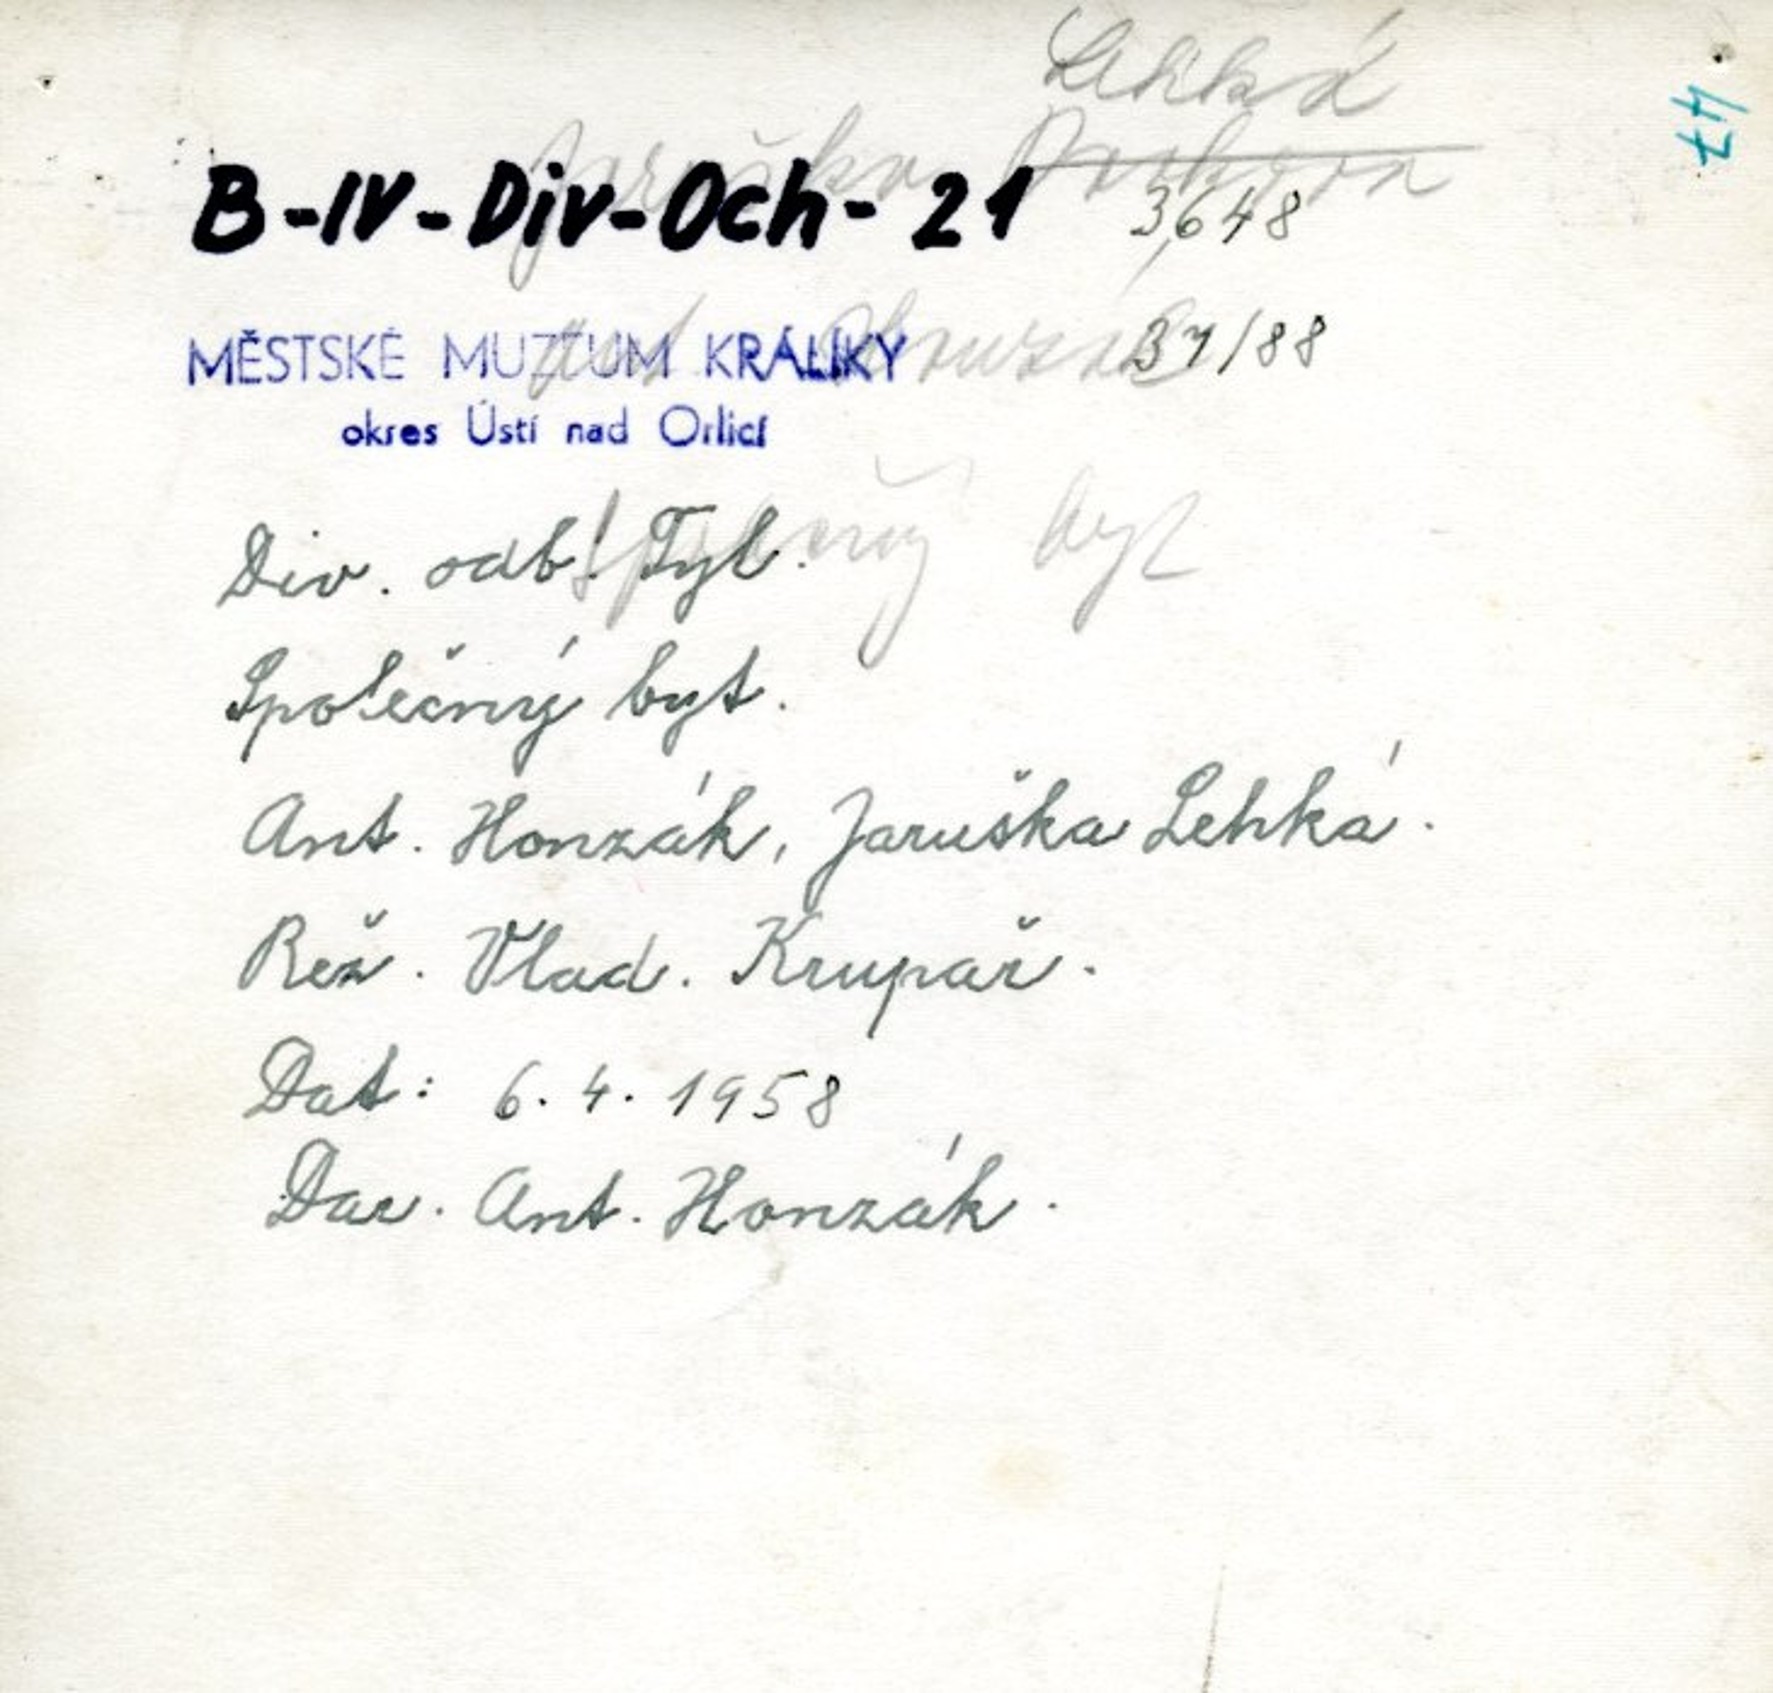 Lehká
47
Jaruška
B-IV-Div-Och-21 3648
MĚSTSKÉ MUZEUM KRÁLÍKY 37/88
okres Ústí nad Orlicí
Společný byt
Div. odb. Tyl.
Společný byt.
Ant. Honzák, Jaruška Lehká.
Rež. Vlad. Krupař.
Dat: 6. 4. 1958
Dar. Ant. Honzák.